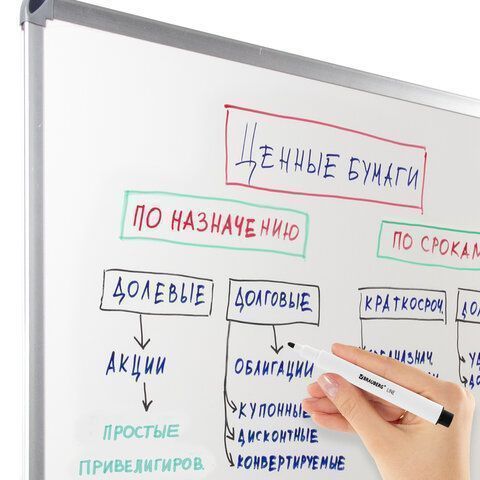 ЦЕННЫЕ БУМАГИ
ПО НАЗНАЧЕНИЮ
ПО СРОКАМ
ДОЛЕВЫЕ
ДОЛГОВЫЕ
КРАТКОСРОЧ.
АКЦИИ
ОБЛИГАЦИИ
ПРОСТЫЕ
ПРИВЕЛИГИРОВ.
КУПОННЫЕ
ДИСКОНТНЫЕ
КОНВЕРТИРУЕМЫЕ
BRAUBERG LINE